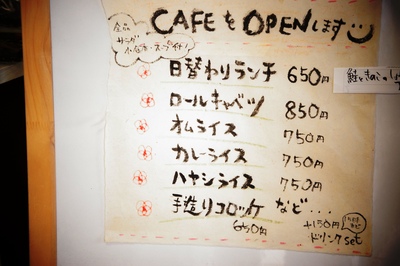 CAFEもOPENします
全品
サラダ
スープ付!
日替わりランチ 650円
ロールキャベツ 850円
オムライス 750円
カレーライス 750円
ハヤシライス 750円
手造りコロッケ など...
650円
+150円
ドリンクset
鮭ときのこの